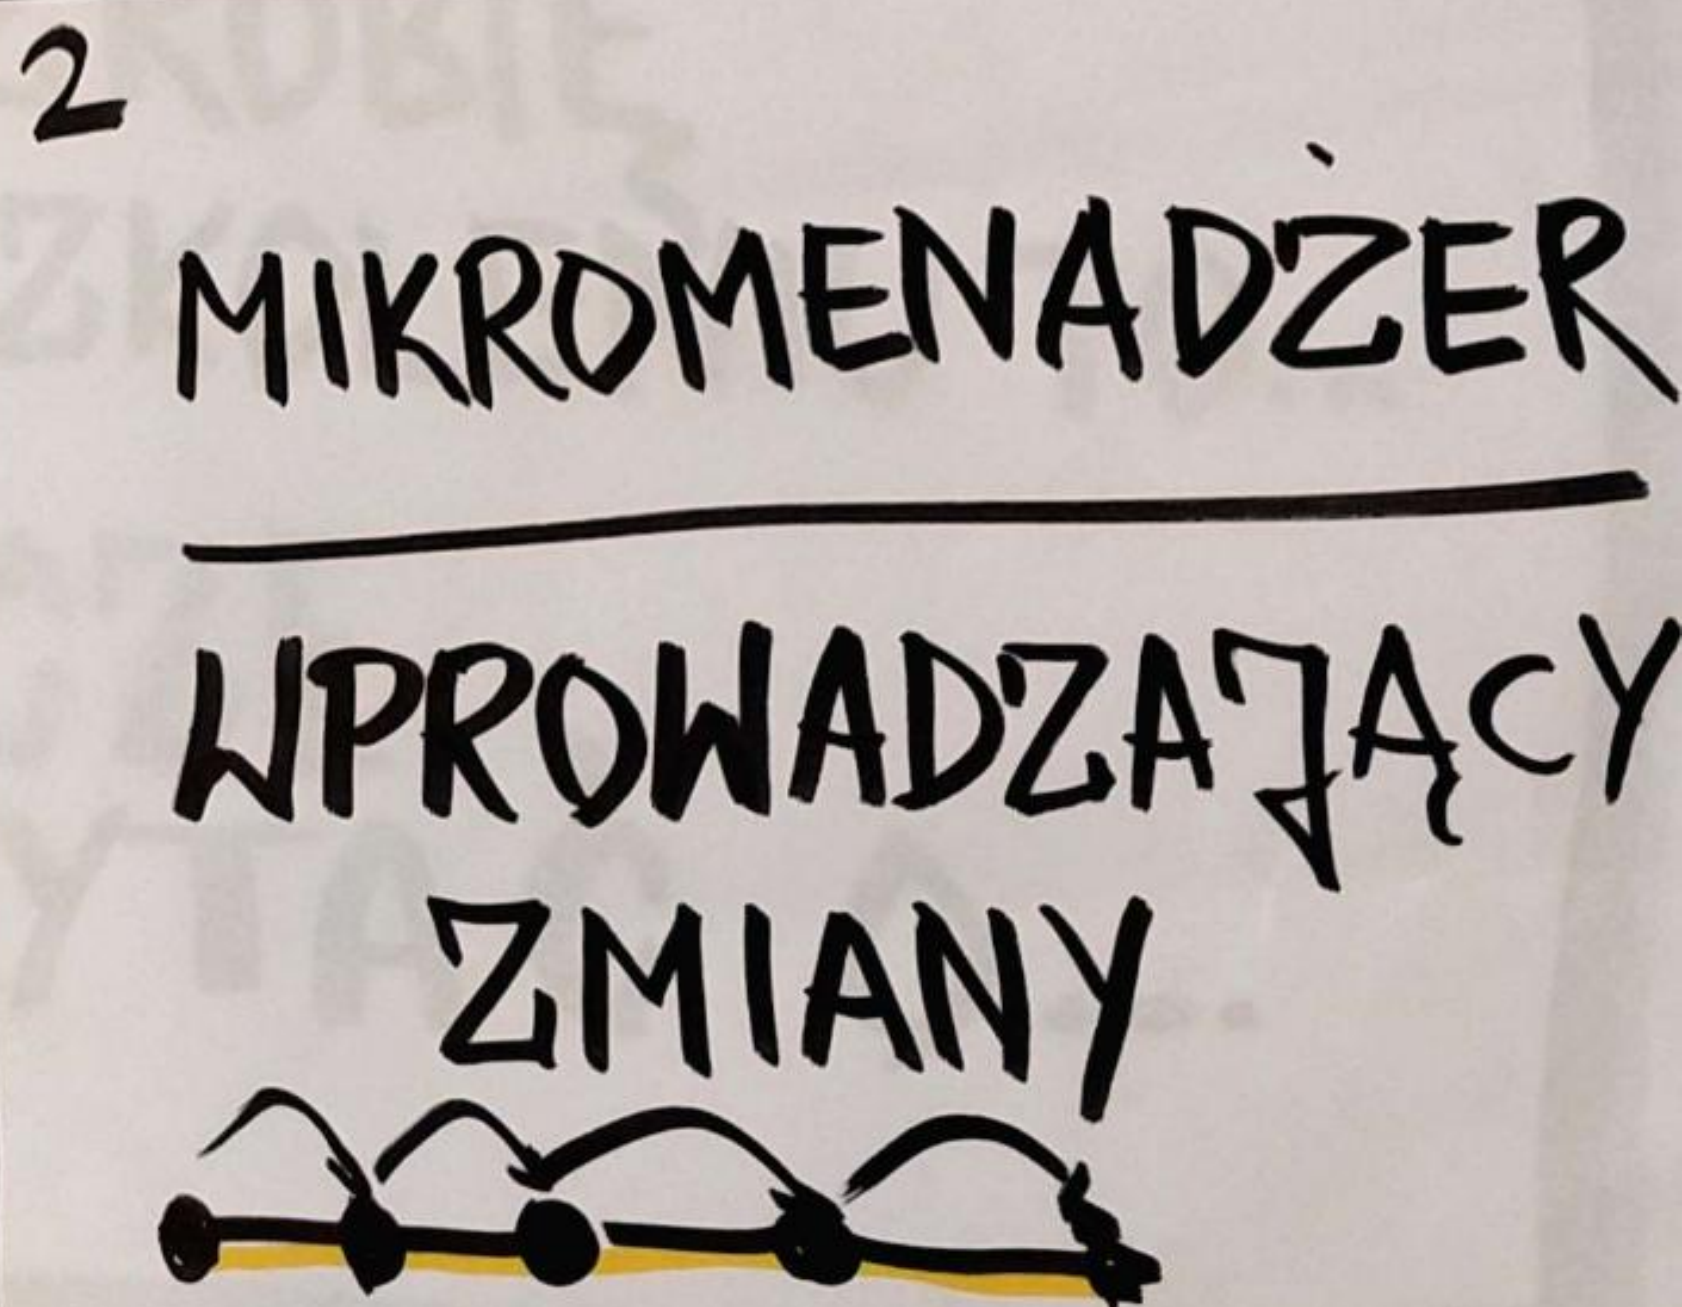 2
MIKROMENADŻER
WPROWADZAJĄCY
ZMIANY